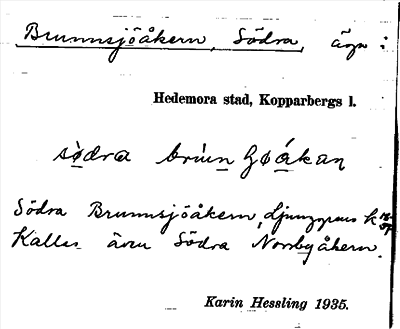 Brunnsjöåkern, Södra, äga:
Hedemora stad, Kopparbergs l.
södra brun
Södra Brunnsjöåkern, Ljunggrens k
Kallas även Södra Norrbyåkern.
Karin Hessling 1935.